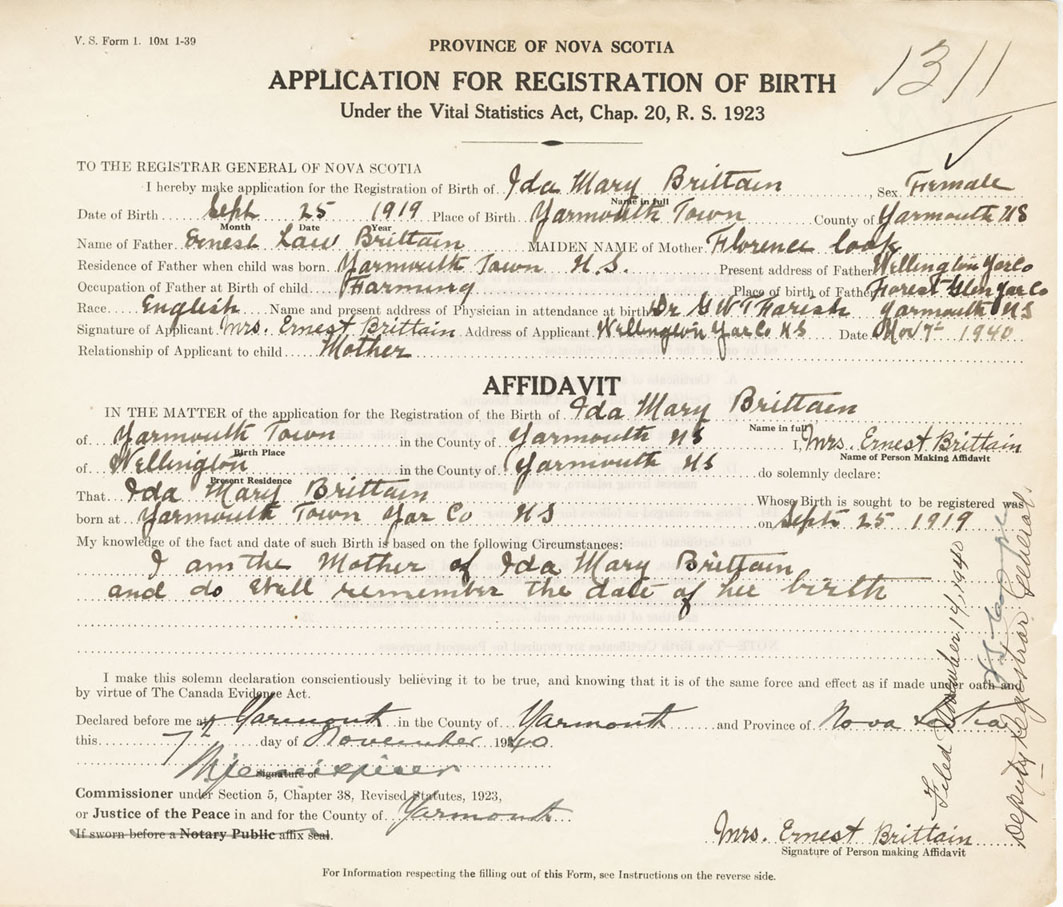 V. S. Form 1. 10M 1-39
1311
PROVINCE OF NOVA SCOTIA
APPLICATION FOR REGISTRATION OF BIRTH
Under the Vital Statistics Act, Chap. 20, R. S. 1923
TO THE REGISTRAR GENERAL OF NOVA SCOTIA
I hereby make application for the Registration of Birth of Ida Mary Brittain Sex Female
Name in full
Date of Birth Sept 25 1919 Place of Birth Yarmouth Town County of Yarmouth NS
Month Date Year
Name of Father Ernest Law Brittain MAIDEN NAME of Mother Florence Cook
Residence of Father when child was born Yarmouth Town N.S. Present address of Father Wellington Yar Co
Occupation of Father at Birth of child Farming Place of birth of Father Forest Glen Yar Co
Race English Name and present address of Physician in attendance at birth Dr G W T Farish Yarmouth NS
Signature of Applicant Mrs. Ernest Brittain Address of Applicant Wellington Yar Co NS Date Nov 7th 1940
Relationship of Applicant to child Mother
AFFIDAVIT
IN THE MATTER of the application for the Registration of the Birth of Ida Mary Brittain
Name in full
of Yarmouth Town in the County of Yarmouth NS I, Mrs. Ernest Brittain
Birth Place Name of Person Making Affidavit
of Wellington in the County of Yarmouth NS do solemnly declare:
Present Residence
That Ida Mary Brittain Whose Birth is sought to be registered was
born at Yarmouth Town Yar Co NS on Sept 25 1919
My knowledge of the fact and date of such Birth is based on the following Circumstances:
I am the Mother of Ida Mary Brittain
and do well remember the date of her birth
I make this solemn declaration conscientiously believing it to be true, and knowing that it is of the same force and effect as if made under oath and
by virtue of The Canada Evidence Act.
Declared before me at Yarmouth in the County of Yarmouth and Province of Nova Scotia
this 7th day of November 1940.
Signature of
Commissioner under Section 5, Chapter 38, Revised Statutes, 1923,
or Justice of the Peace in and for the County of Yarmouth
If sworn before a Notary Public affix seal.
Mrs. Ernest Brittain
Signature of Person making Affidavit
For Information respecting the filling out of this Form, see Instructions on the reverse side.
Filed November 14, 1940
Deputy Registrar General